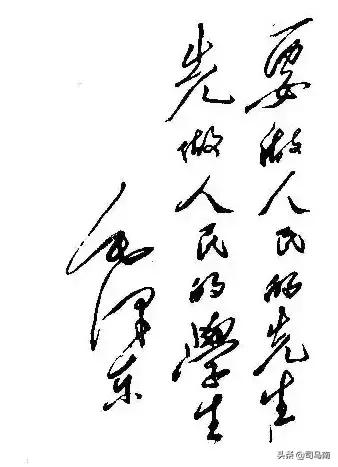 要做人民的先生
先做人民的學生
毛泽东
头条@司马南